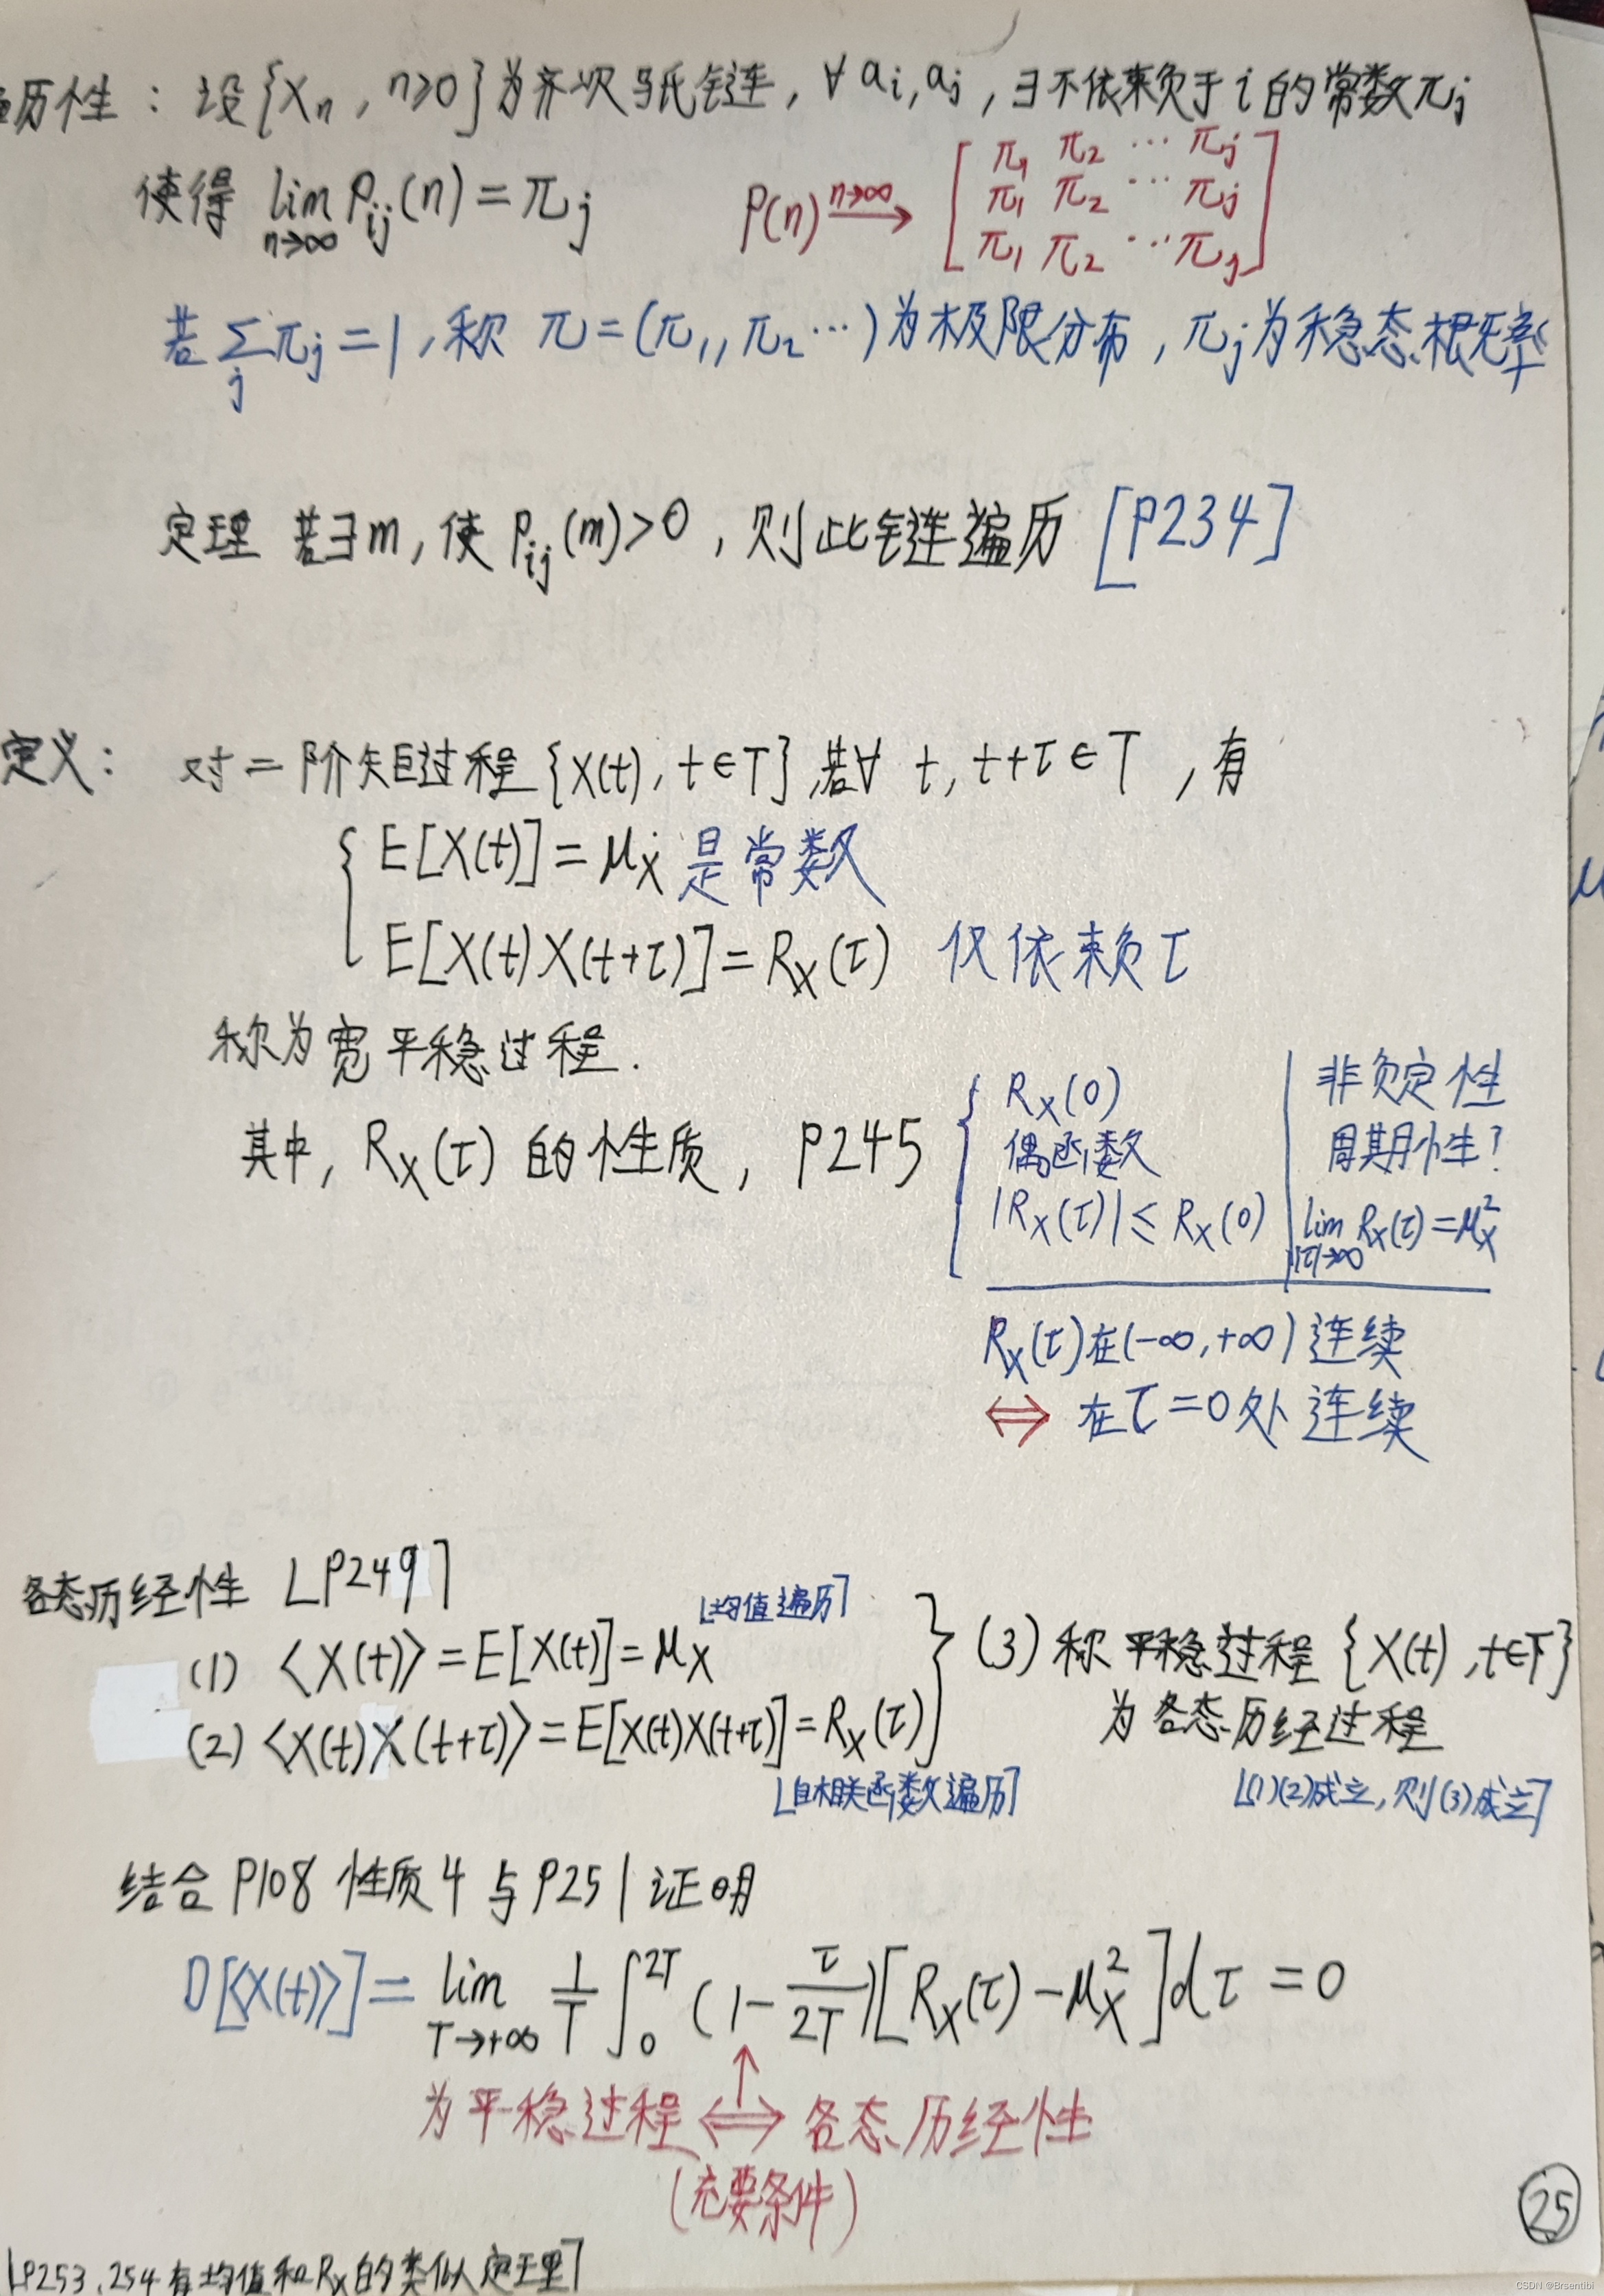 遍历性：设{Xn, n≥0}为齐次马氏链，∀ai,aj，∃不依赖于i的常数πj
使得 lim n→∞ Pij(n)=πj
P(n) n→∞ → [π1 π2 … πj
π1 π2 … πj
π1 π2 … πj]
若 Σj πj=1，称 π=(π1,π2…)为极限分布，πj为稳态概率
定理 若∃m，使 Pij(m)>0，则此链遍历 [P234]
定义：对二阶矩过程{X(t), t∈T},若∀ t, t+τ∈T，有
E[X(t)]=μX 是常数
E[X(t)X(t+τ)]=RX(τ) 仅依赖τ
称为宽平稳过程.
其中，RX(τ)的性质，P245
RX(0)
偶函数
|RX(τ)|≤RX(0)
非负定性
周期性?
lim |τ|→∞ RX(τ)=μX²
RX(τ)在(-∞,+∞)连续
⇔ 在τ=0处连续
各态历经性 [P249]
[均值遍历]
(1) ⟨X(t)⟩=E[X(t)]=μX
(2) ⟨X(t)X(t+τ)⟩=E[X(t)X(t+τ)]=RX(τ)
[自相关函数遍历]
(3) 称平稳过程{X(t), t∈T}
为各态历经过程
[(1)(2)成立, 则(3)成立]
结合P108 性质4 与P251证明
D[⟨X(t)⟩]= lim T→+∞ 1/T ∫₀^2T (1-τ/2T)[RX(τ)-μX²]dτ=0
↑
为平稳过程⇔各态历经性
(充要条件)
25
[P253、254有均值和RX的类似定理]
CSDN @Brsentibi